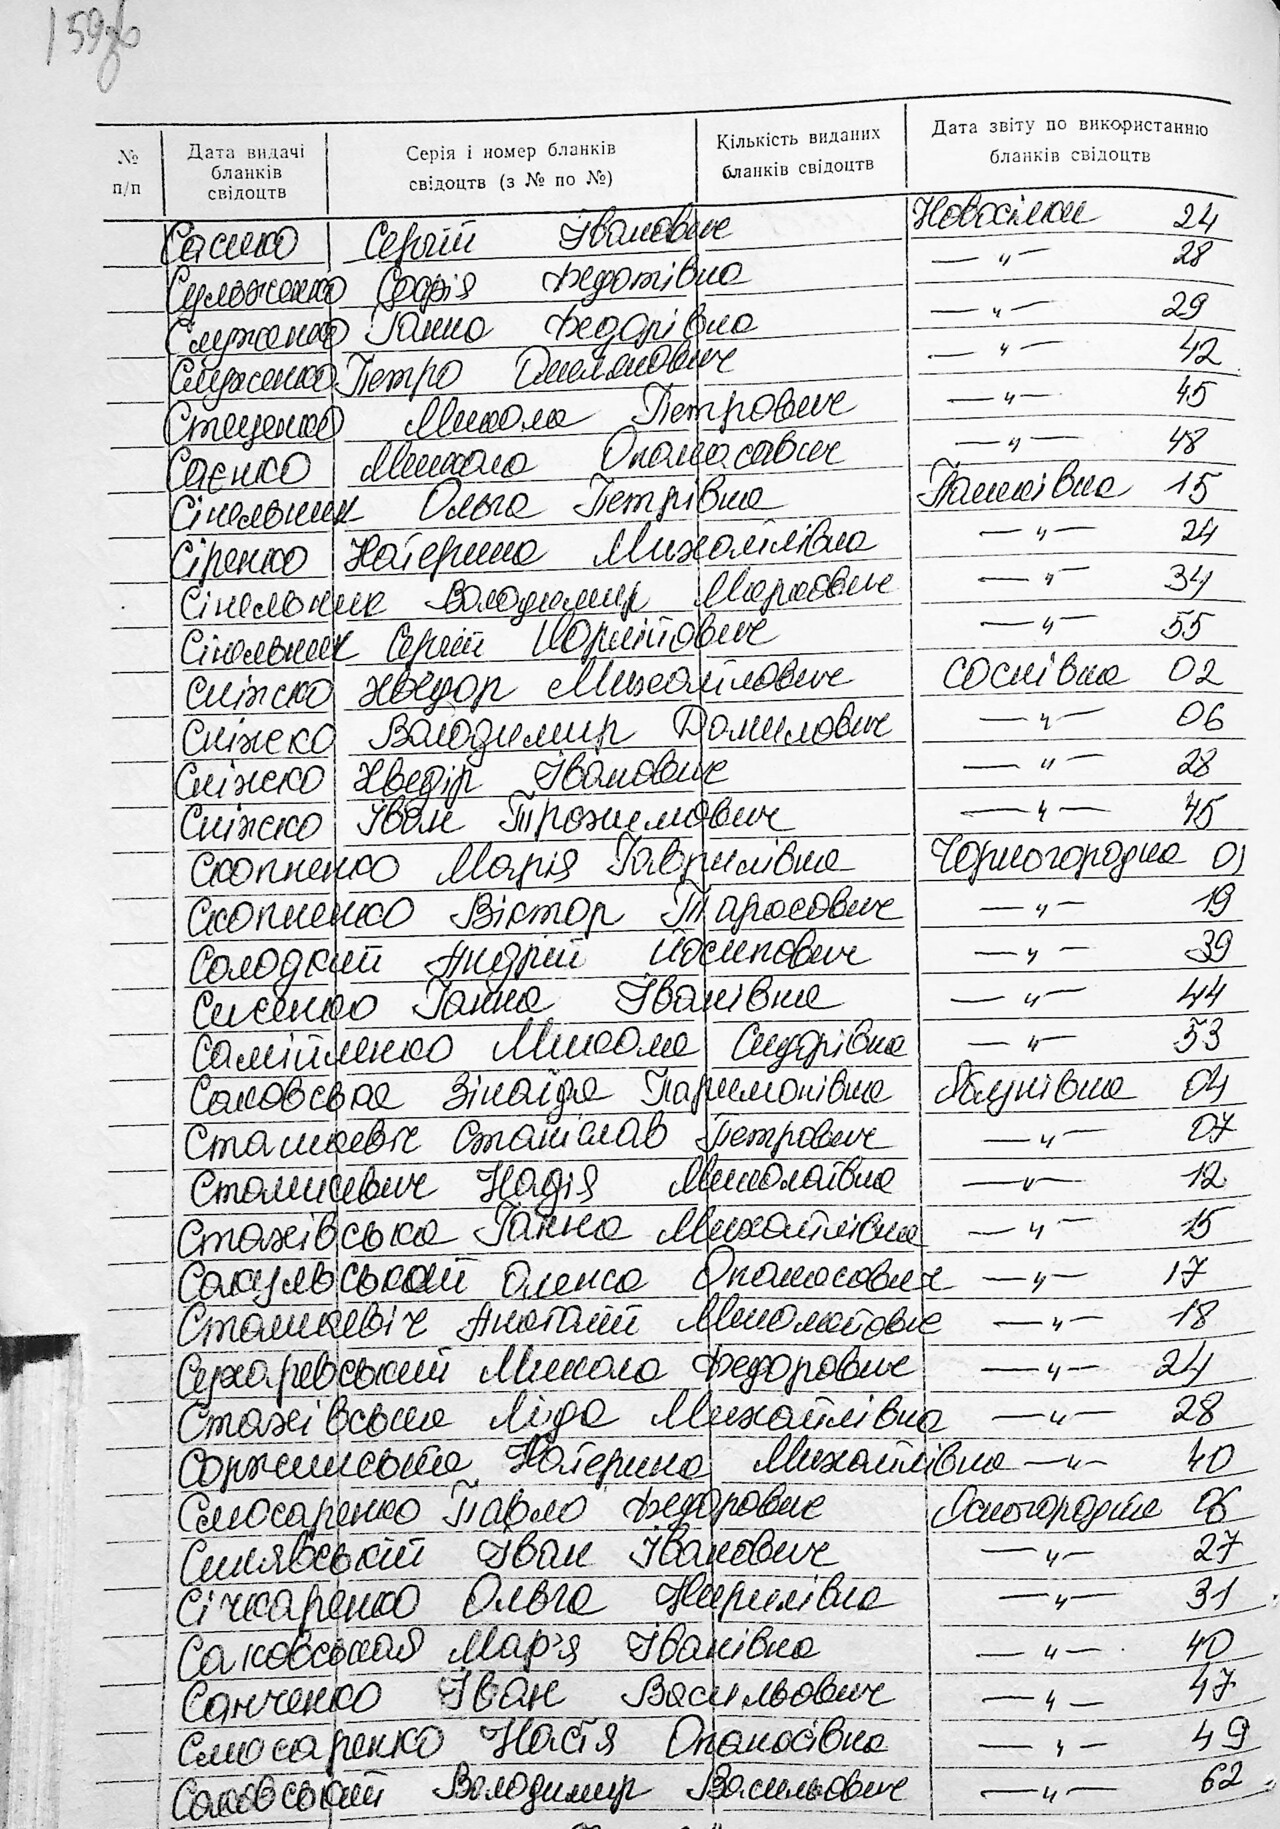 159зб
№ п/п
Дата видачі бланків свідоцтв
Серія і номер бланків свідоцтв (з № по №)
Кількість виданих бланків свідоцтв
Дата звіту по використанню бланків свідоцтв
Сașко Сергій Іванович Новосілки 24
Сульженко Софія Федотівна —„— 28
Служенко Ганна Федорівна —„— 29
Служенко Петро Омелянович —„— 42
Стеценко Микола Петрович —„— 45
Саєнко Микола Опанасович —„— 48
Сінельник Ольга Петрівна Пашківка 15
Сіренко Катерина Михайлівна —„— 24
Сінельник Володимир Маркович —„— 34
Сінельник Сергій —„— 55
Сніжко Хведор Михайлович Соснівка 02
Сніжко Володимир Данилович —„— 06
Сніжко Хведір Іванович —„— 28
Сніжко Іван Трохимович —„— 45
Скопненко Марія Гаврилівна Чорногородка 01
Скопненко Віктор Тарасович —„— 19
Солодкий Андрій Йосипович —„— 39
Сисенко Ганна Іванівна —„— 44
Самійленко Микола Сидорівна —„— 53
Саковська Зінаїда Паримонівна Яблунівка 04
Сташкевіч Станіслав Петрович —„— 07
Сташкевич Надія Миколаївна —„— 12
Стахівська Ганна Михайлівна —„— 15
Сакульський Олекса Опанасович —„— 17
Сташкевіч Анатолій Миколайович —„— 18
Сухаревський Микола Федорович —„— 24
Стахівська Ліда Михайлівна —„— 28
Соржинська Катерина Михайлівна —„— 40
Слюсаренко Павло Федорович Ясногородка 06
Синявський Іван Іванович —„— 27
Січкаренко Ольга Кирилівна —„— 31
Саковськая Мар'я Іванівна —„— 40
Санченко Іван Васильович —„— 47
Слюсаренко Настя Опанасівна —„— 49
Саковський Володимир Васильович —„— 62